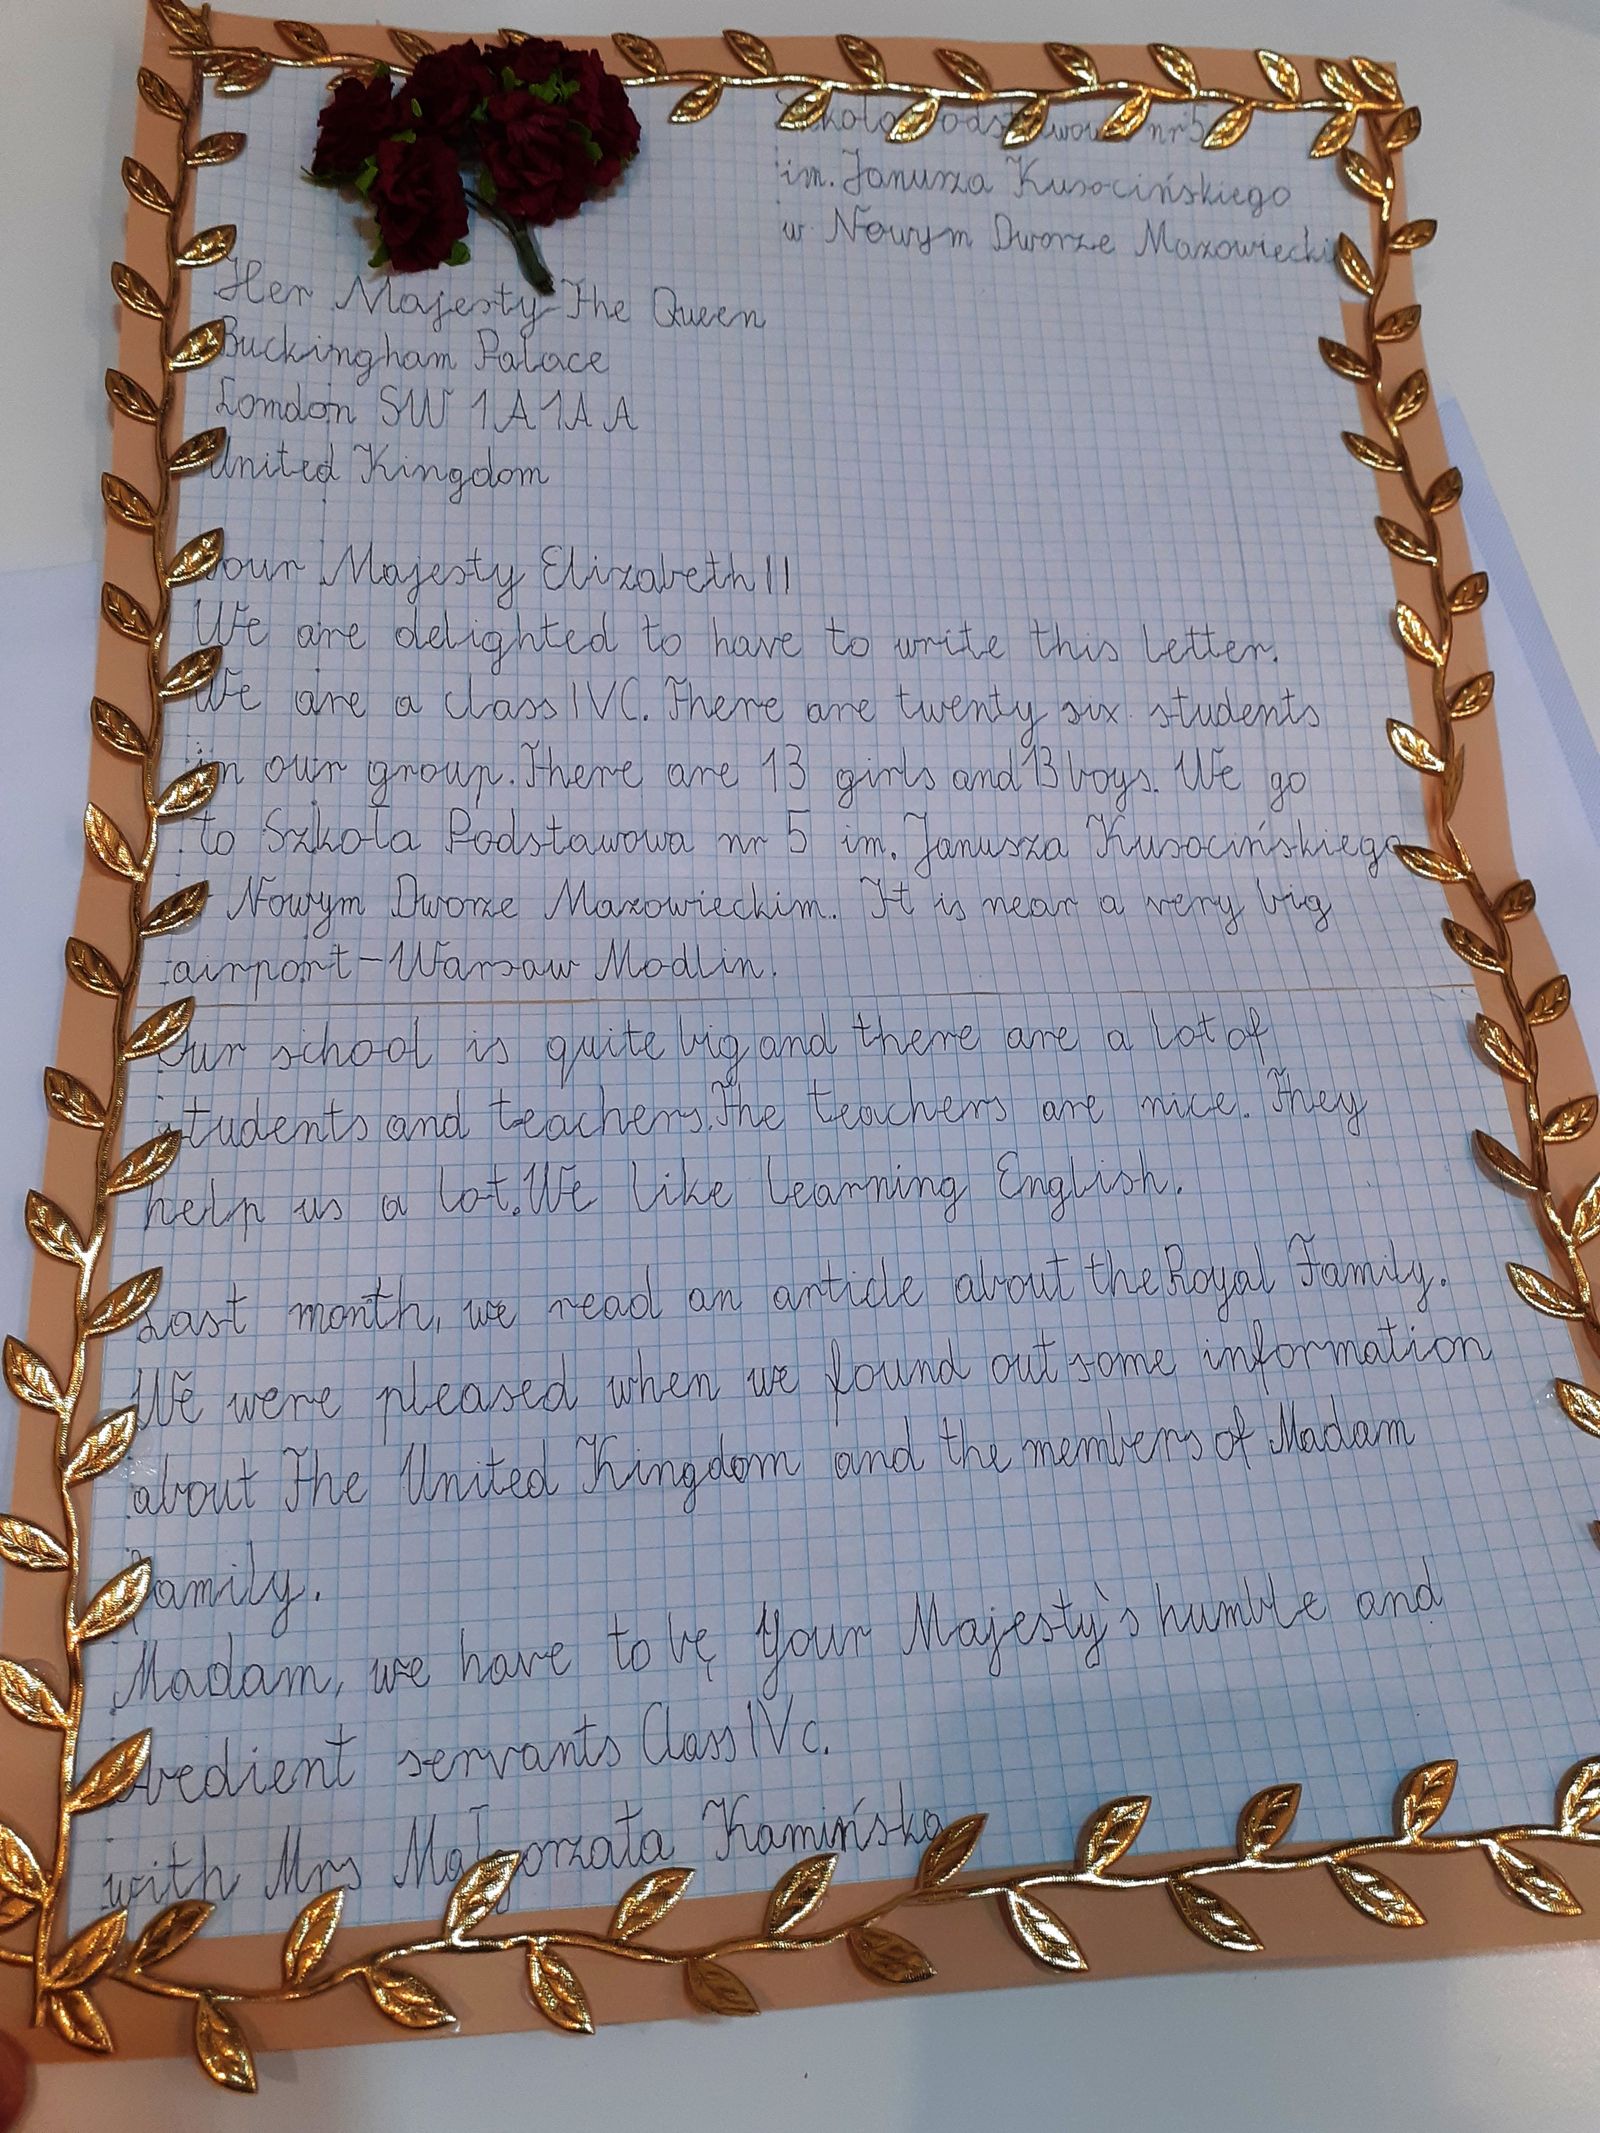 Szkoła Podstawowa nr 5
im. Janusza Kusocińskiego
w Nowym Dworze Mazowiecki
Her Majesty The Queen
Buckingham Palace
London SW 1A 1A A
United Kingdom
Your Majesty Elizabeth II
We are delighted to have to write this letter.
We are a class IVC. There are twenty six students
in our group. There are 13 girls and 13 boys. We go
to Szkoła Podstawowa nr 5 im. Janusza Kusocińskiego
Nowym Dworze Mazowieckim. It is near a very big
airport - Warsaw Modlin.
Our school is quite big and there are a lot of
students and teachers. The teachers are nice. They
help us a lot. We like learning English.
Last month, we read an article about the Royal Family.
We were pleased when we found out some information
about The United Kingdom and the members of Madam
family.
Madam, we have to be Your Majesty's humble and
obedient servants Class IV c.
with Mrs Małgorzata Kamińska